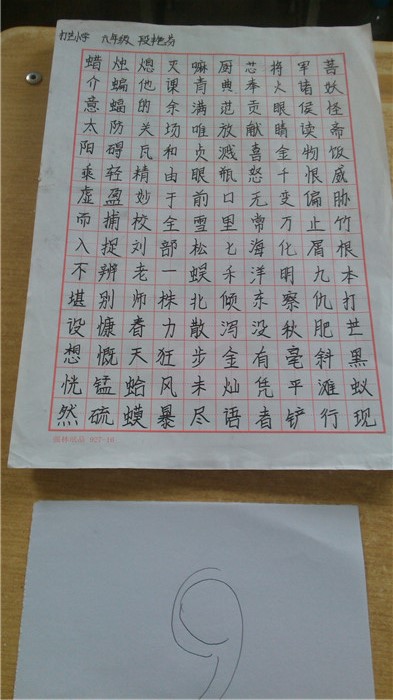 打芒小学 九年级 段艳芬
蜡烛熄灭嘛厨芯将军菩
介蝙他课青典奉火诸妖
意蝠的余满范贡眼侯怪
太防关场唯放献睛读斋
阳碍瓦和贞溅喜金物饭
乘轻精由眼瓶怒千恨威
虚盈妙于前口无变偏胁
而捕校全雪里常万止竹
入捉刘部松七海化屑根
不辨老一蜈禾洋明九本
堪别师株北倾东察仇打
设慷春力散泻没秋肥芒
想慨天狂步金有毫斜黑
恍锰蛤风未灿凭平滩蚁
然硫蟆暴尽语者铲行现
827-16
9